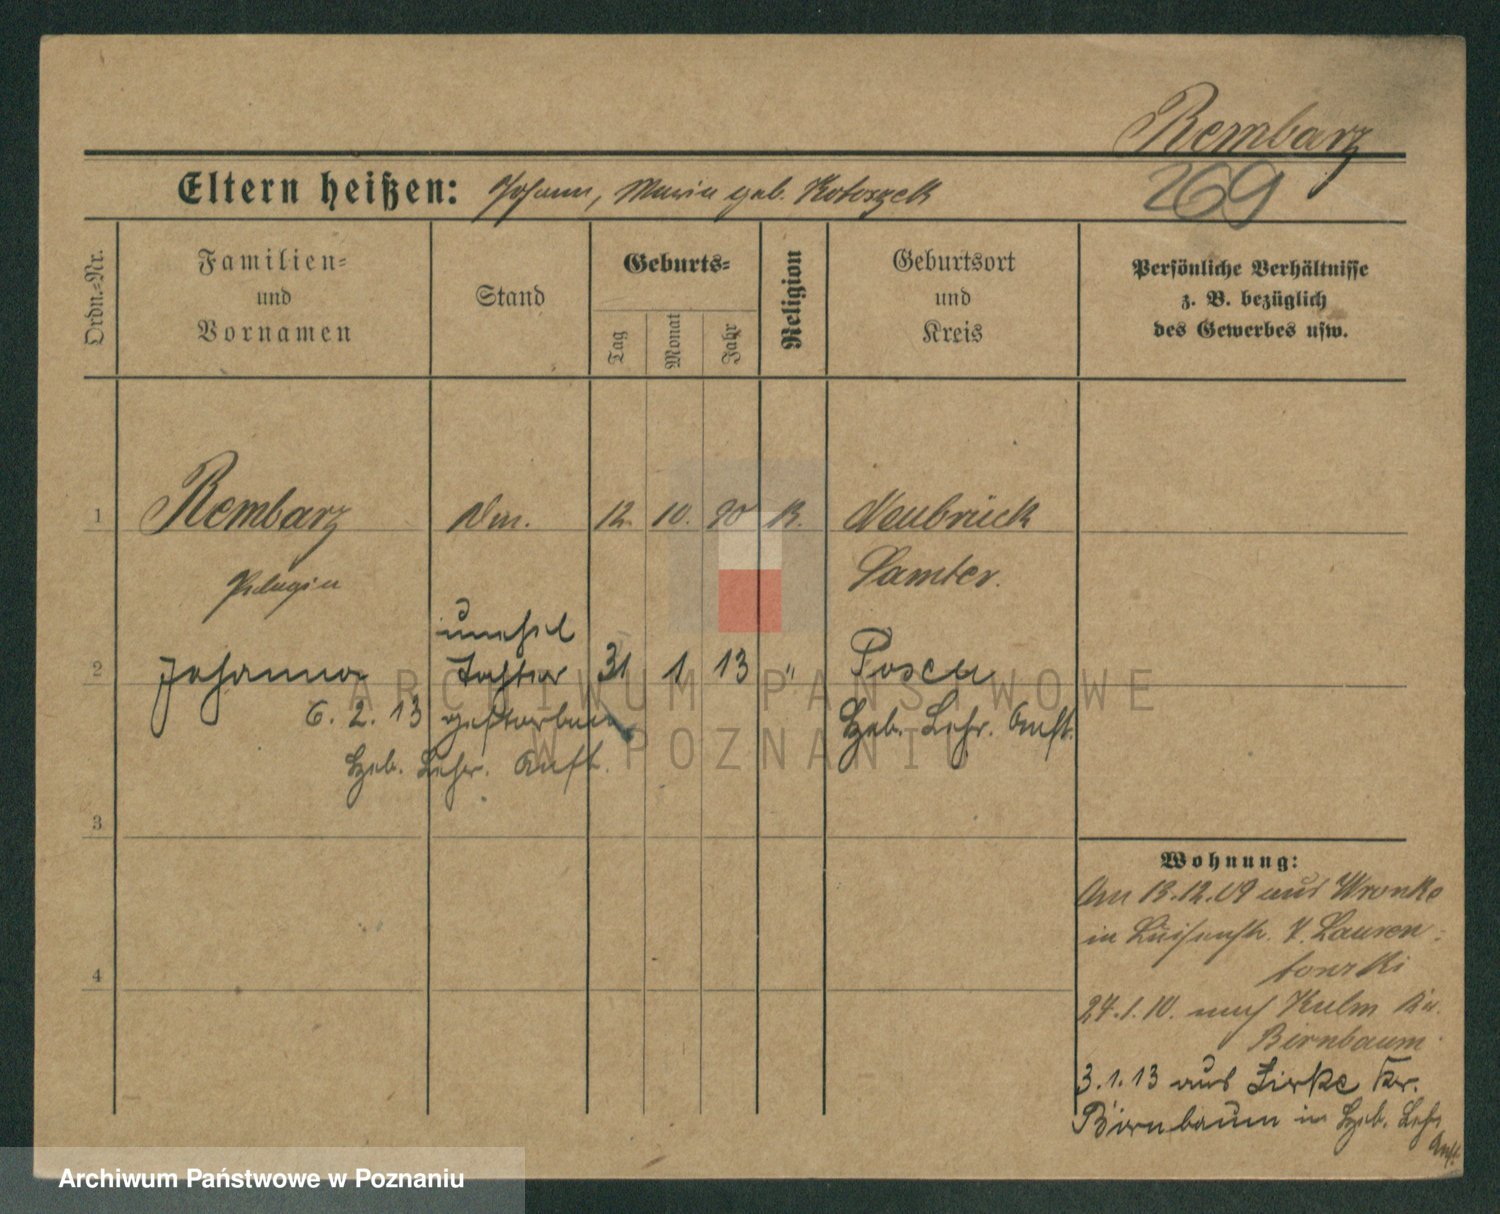 Rembarz
269
Eltern heißen: Johann, Maria geb. Kotoszek
Ordn.-Nr.
Familien-
und
Vornamen
Stand
Geburts-
Tag
Monat
Jahr
Religion
Geburtsort
und
Kreis
Persönliche Verhältnisse
z. B. bezüglich
des Gewerbes usw.
1 Rembarz 12. 10. 90 K. Neubrück
Pelagia Samter.
unehel
2 Johanna Tochter 31 1 13 " Posen
6. 2. 13 gestorben Heb. Lehr. Anst.
Heb. Lehr. Anst.
3
4
Wohnung:
Am 13.12.09 aus Wronke
in Luisenstr. Lauren-
towski
24.1.10. nach Kulm Kr.
Birnbaum
3.1.13 aus Zirke Kr.
Birnbaum in Heb. Lehr
Anst.
ARCHIWUM PAŃSTWOWE
W POZNANIU
Archiwum Państwowe w Poznaniu